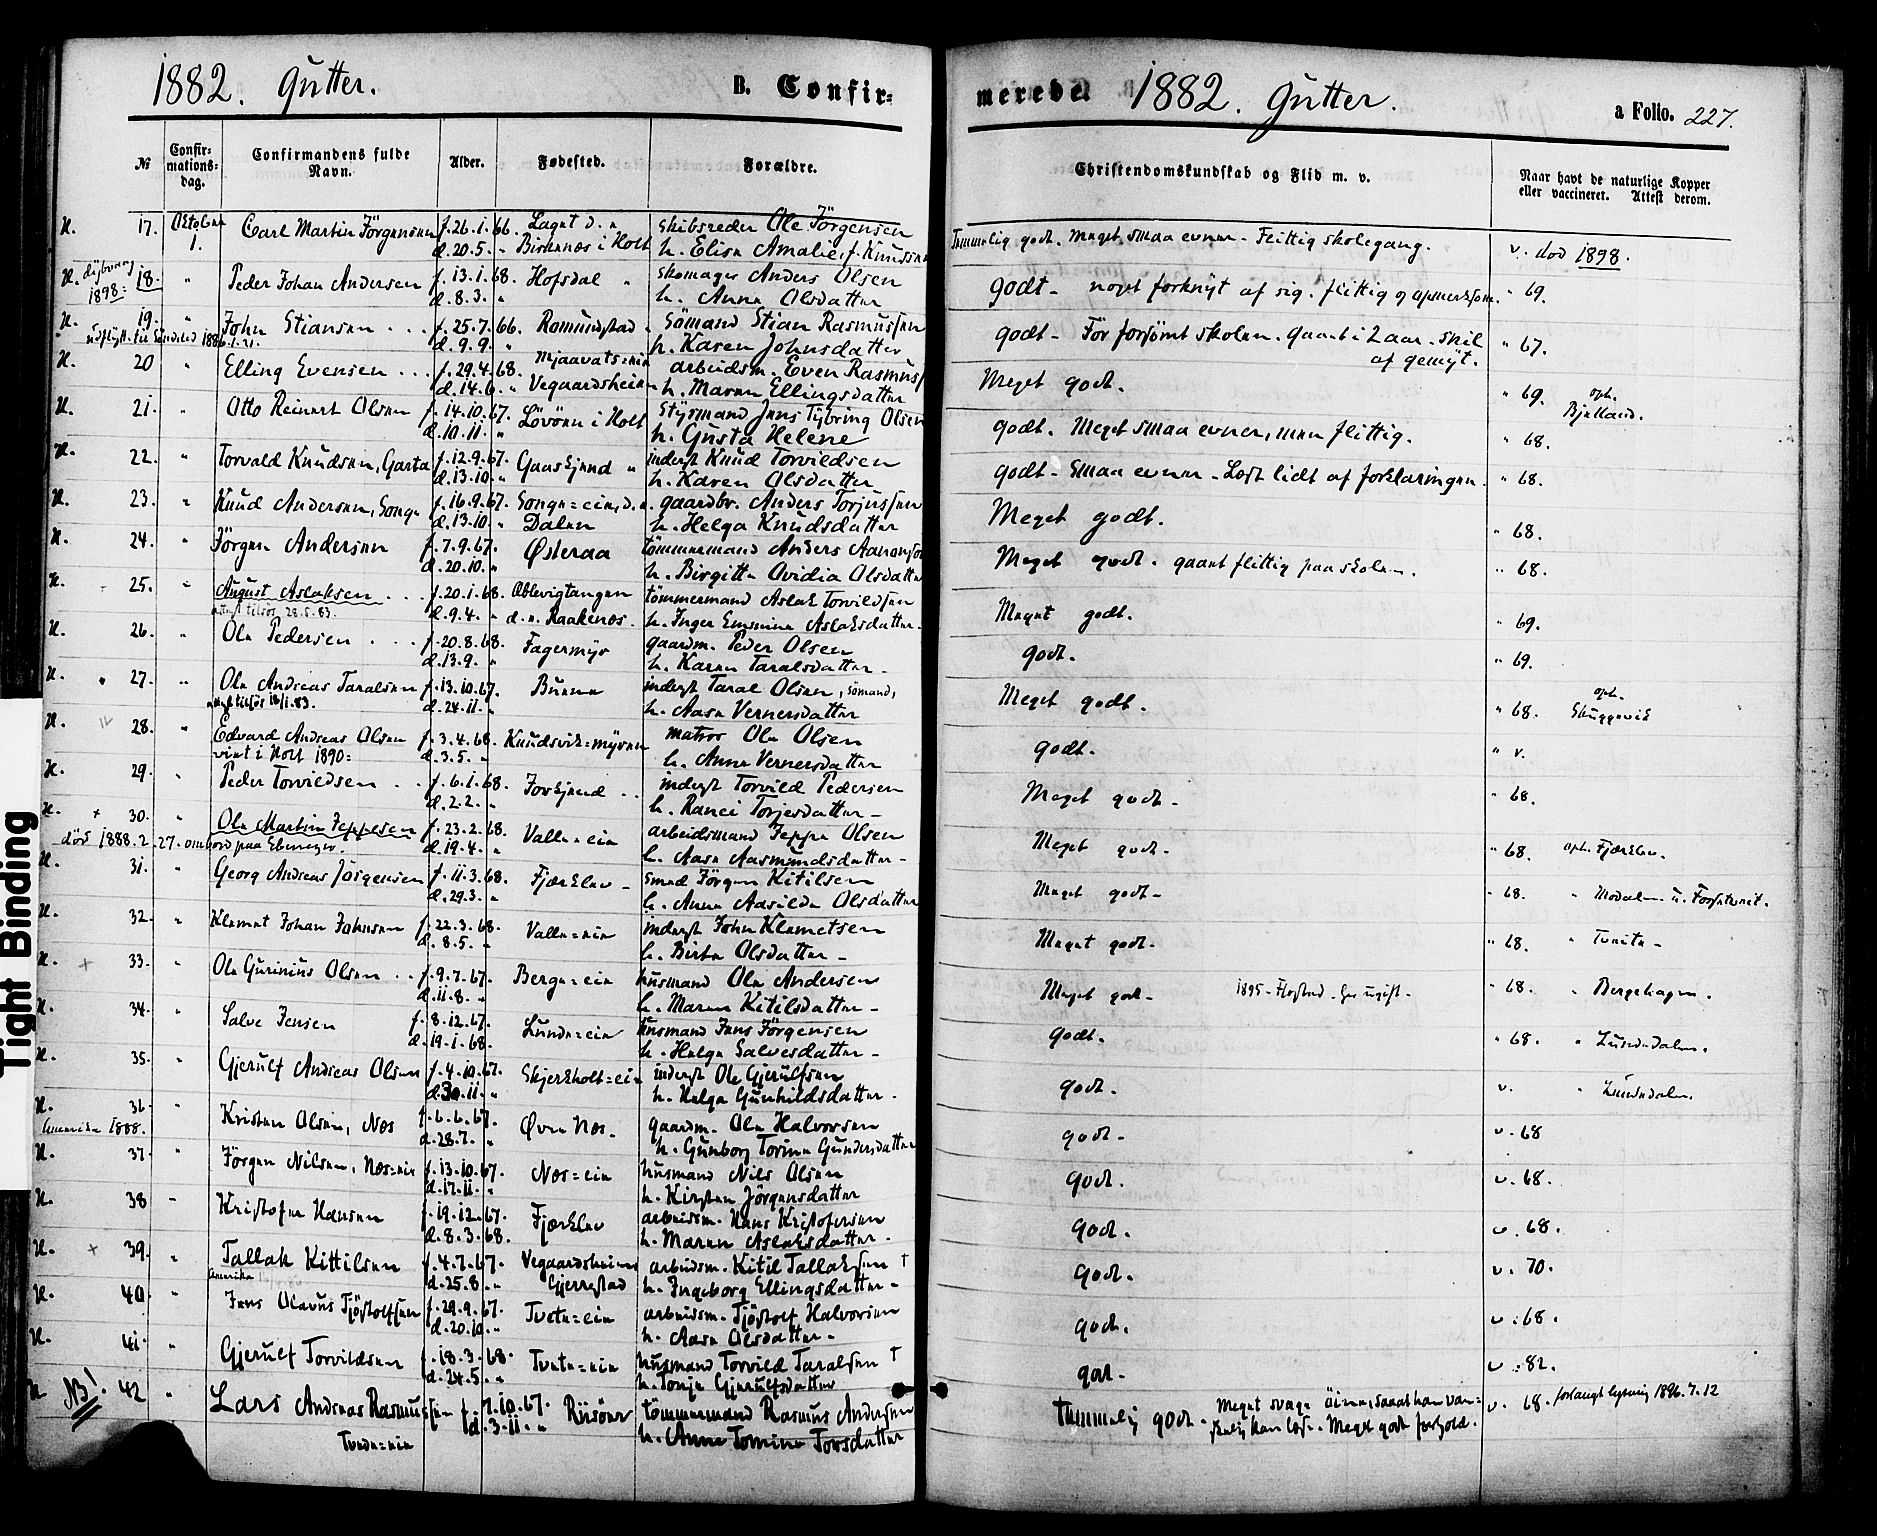 1882. Gutter.
B. Confir-
№
Confir-
mations-
dag.
Confirmandens fulde
Navn.
Alder.
Fødested.
Forældre.
17. Oktober 1. Carl Martin Jörgensen f. 26.1.66. d. 20.5. " Birkenæs i Holt Skibsreder Ole Jörgensen
h. Elise Amalie, f. Knudsen
18. " Peder Johan Andersen f. 13.1.68. d. 8.3. " Hofsdal " Skomager Anders Olsen
1898. h. Anne Olsdatter
19. " John Stiansen f. 25.7.66. d. 9.9. " Romundstad Sömand Stian Rasmussen
h. Karen Johnsdatter
20 " Elling Evensen f. 29.4.68. d. 14.6. " Vegaardsheien arbeidsm. Even Rasmuss
h. Maren Ellingsdatter
21. " Otto Reinert Olsen f. 14.10.67. d. 10.11. " Lövöen i Holt Styrmand Jens Tybring Olsen
h. Gusta Helene
22. " Torvald Knudsen, Garta f. 12.9.67. d. 13.10. " Gaaskjend " inderst Knud Torvildsen
h. Karen Olsdatter
23. " Knud Andersen, Songe f. 16.9.67. d. 13.10. " Songe=eie, d.e. Dalen gaardbr. Anders Torjussen
h. Helga Knudsdatter
24. " Jörgen Andersen f. 7.9.67. d. 20.10. " Østeraa tömmermand Anders Aanonsen
h. Birgitte Ovidia Olsdatter
25. " August Aslaksen f. 20.1.68. d. 9.4. " Oblevigtangen d.e. Raakenes. tömmermand Aslak Torvildsen
attest tilsös 28.5.83. h. Inger Emmine Aslaksdatter.
26. " Ole Pedersen f. 20.8.68. d. 13.9. " Fagermyr gaardm. Peder Olsen
h. Karen Taralsdatter -
27. " Ole Andreas Taralsen f. 13.10.67. d. 24.11. " Bunne inderst Taral Olsen, sömand,
h. Aase Vernersdatter
28. " Edvard Andreas Olsen f. 3.4.68. d. 3.5. " Knudsvik=myren matros Ole Olsen
viet i Holt 1890= h. Anne Vernersdatter
29. " Peder Torvildsen f. 6.1.68. d. 2.2. " Forskjend inderst Torvild Pedersen
h. Ranei Torjesdatter -
30. " Ole Martin Jeppesen f. 23.2.68. d. 19.4. " Valle=eie arbeidsmand Jeppe Olsen
död 1888.2.27. ombord paa Ebenezer. h. Aase Aasmundsdatter -
31. " Georg Andreas Jörgensen f. 11.3.68. d. 29.3. " Fjærklev - Smed Jörgen Kitilsen
h. Anne Aasilde Olsdatter
32. " Klemet Johan Johnsen f. 22.3.68. d. 8.5. " Valle=eie inderst John Klemetsen
h. Birte Olsdatter -
33. " Ole Gurinius Olsen f. 9.7.67. d. 11.8. " Berge=eie husmand Ole Andersen
h. Maren Kitilsdatter -
34. " Salve Jensen f. 8.12.67. d. 19.1.68. Lunde=eie husmand Jens Jörgensen
h. Helge Salvesdatter -
35. " Gjerulf Andreas Olsen f. 4.10.67. d. 30.11. " Skjerkholt=eie inderst Ole Gjerulfsen
h. Helga Gunhildsdatter -
36. " Kristen Olsen, Næs f. 6.6.67. d. 28.7. " Øvre Næs. gaardm. Ole Halvorsen
Amerika 1888. h. Gunborg Torine Gundersdatter
37. " Jörgen Nilsen, Næs=eie f. 13.10.67. d. 17.11. " Næs=eie husmand Nils Olsen
h. Kirsten Jörgensdatter
38 " Kristofer Hansen f. 19.12.67. d. 8.3.68. Fjærklev arbeidsm. Hans Kristofersen
h. Maren Aslaksdatter -
39. " Tallak Kittilsen f. 4.7.67. d. 25.8. " Vegaardsheiens Gjerrestad arbeidsm. Kitil Tallaksen †
Amerika h. Ingeborg Ellingsdatter -
40. " Jens Olavus Tjöstolfsen f. 29.9.67. d. 20.10. " Tvete=eie arbeidsm. Tjöstolf Halvorsen
h. Aase Olsdatter -
41. " Gjerulf Torvildsen f. 18.3.68. d. 24.5. " Tvete=eie husmand Torvild Taralsen †
h. Tonje Gjerulfsdatter
NB! 42 " Lars Andreas Rasmussen f. 7.10.67. d. 3.11. " Riisöer tömmermand Rasmus Andersen
Tvede=eie h. Anne Tomine Torsdatter
Tight Binding
merede. 1882. Gutter.
a Folio. 227.
Christendomskundskab og Flid m. v.
Naar havt de naturlige Kopper
eller vaccineret. Attest derom.
Temmelig godt. Meget smaa evner - Flittig skolegang. v. død 1898.
Godt - noget forknyt af sig. flittig og opmerksom. " 69.
Godt - Før forsömt skolen. Gaaet i 2 aar. Skil " 67.
af gemyt.
Meget godt. " 69. oph. Bjelland.
Godt. Meget smaa evner, men flittig. " 68.
Godt - Smaa evner - Læst lidt af forklaringen. " 68.
Meget godt. " 68.
Meget godt. gaaet flittig paa skolen. " 68.
Meget godt. " 69.
Godt. " 69.
Meget godt. " 68. oph. Skuggevik
Godt. " v.
Meget godt - " 68.
Meget godt. " 68. oph. Fjærklev.
Meget godt - " 68. "
Meget godt. " 68. " Tveite -
Meget godt - 1895 - Flostad - ugift - " 68. " Bergehagen.
Godt. " 68. " Lundedalen.
Godt. v. " Lundedalen.
Godt - v. 68
Godt. v. 68.
Godt. v. 68.
Godt. v. 70.
Godt. v. 68.
Godt - v. 82.
Temmelig godt. Meget svage öine, saaat han van- v. 68. forlangt lysning 1896.7.12
skelig kan læse. Meget godt forhold.